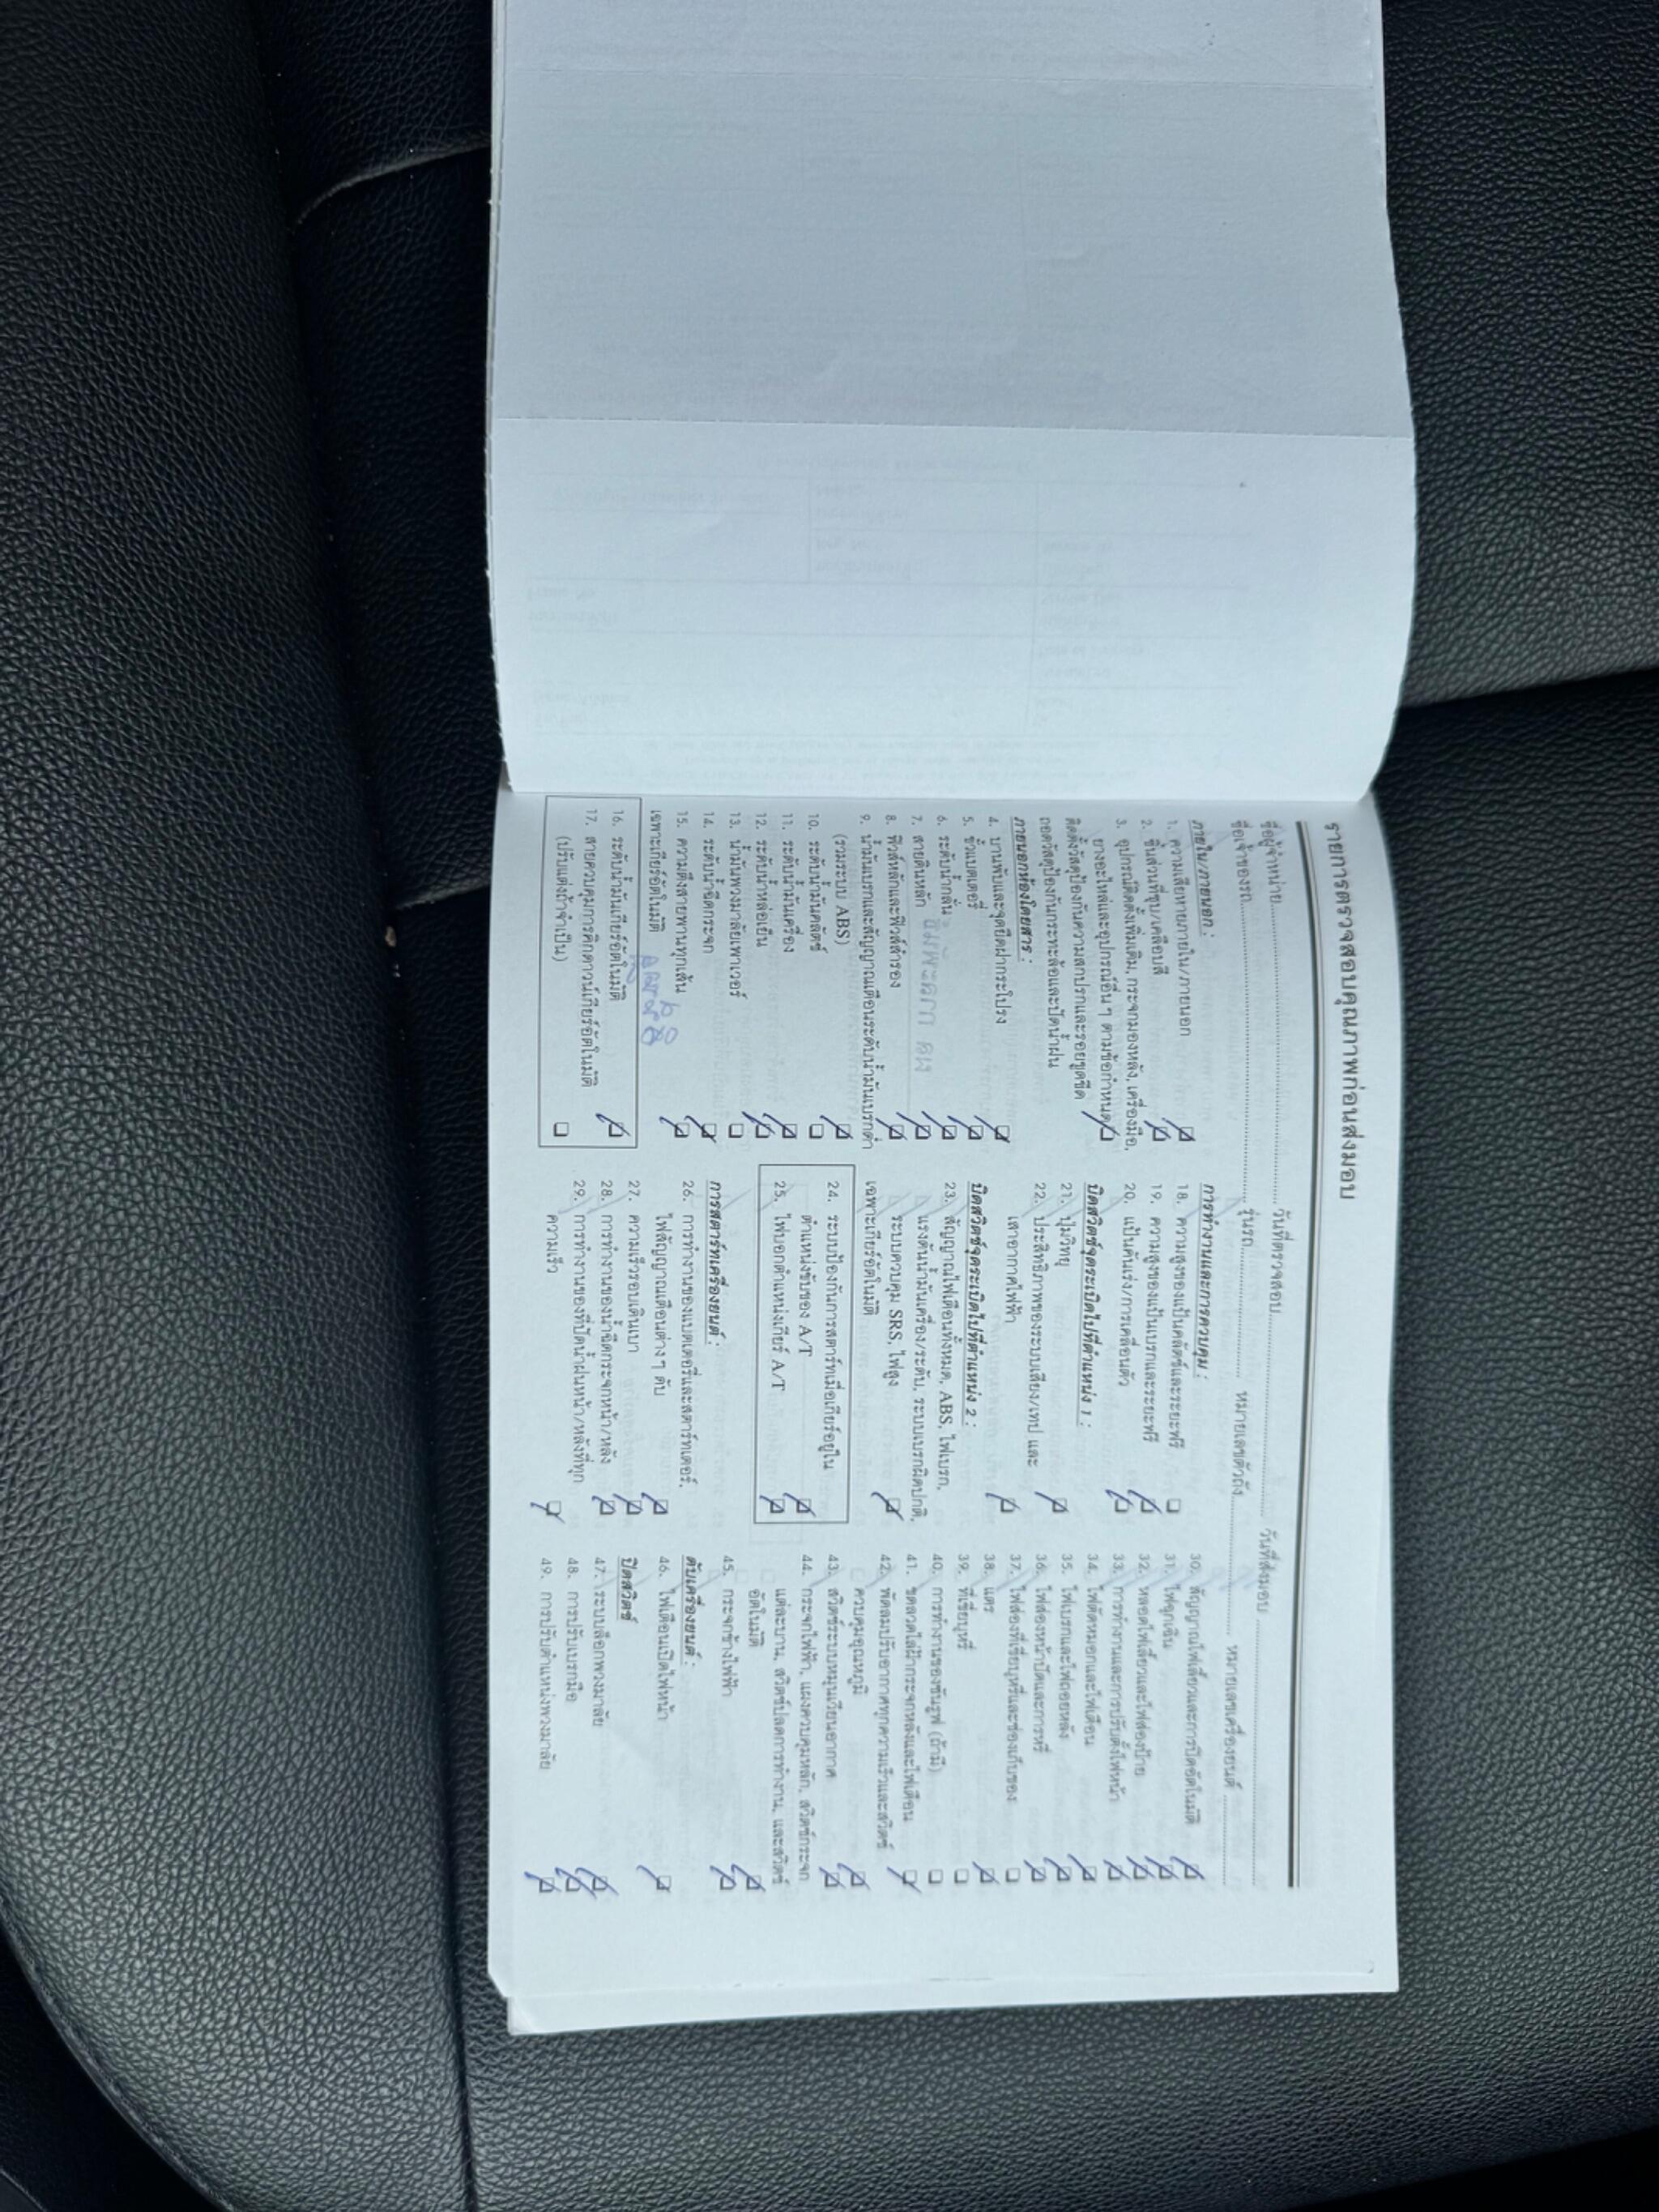 รายการตรวจสอบคุณภาพก่อนส่งมอบ
ชื่อผู้จำหน่าย.......... วันที่ตรวจสอบ .......... วันที่ส่งมอบ ..........
ชื่อเจ้าของรถ.......... รุ่นรถ.......... หมายเลขตัวถัง.......... หมายเลขเครื่องยนต์ ..........
ภายใน/ภายนอก :
1. ความเสียหายภายใน/ภายนอก
2. ชิ้นส่วนที่ชุบ/เคลือบสี
3. อุปกรณ์ติดตั้งเพิ่มเติม, กระจกมองหลัง, เครื่องมือ,
ยางอะไหล่และอุปกรณ์อื่น ๆ ตามข้อกำหนด
ติดตั้งวัสดุป้องกันความสกปรกและรอยขูดขีด
ถอดวัสดุป้องกันกระทะล้อและปัดน้ำฝน
ภายนอกห้องโดยสาร :
4. บานพับและจุดยึดฝากระโปรง
5. ขั้วแบตเตอรี่
6. ระดับน้ำกลั่น
7. สายดินหลัก
8. ฟิวส์หลักและฟิวส์สำรอง
9. น้ำมันเบรกและสัญญาณเตือนระดับน้ำมันเบรกต่ำ
(รวมระบบ ABS)
10. ระดับน้ำมันคลัตช์
11. ระดับน้ำมันเครื่อง
12. ระดับน้ำหล่อเย็น
13. น้ำมันพวงมาลัยเพาเวอร์
14. ระดับน้ำฉีดกระจก
15. ความตึงสายพานทุกเส้น
เฉพาะเกียร์อัตโนมัติ
16. ระดับน้ำมันเกียร์อัตโนมัติ
17. สายควบคุมการคิกดาวน์เกียร์อัตโนมัติ
(ปรับแต่งถ้าจำเป็น)
การทำงานและการควบคุม :
18. ความสูงของแป้นคลัตช์และระยะฟรี
19. ความสูงของแป้นเบรกและระยะฟรี
20. แป้นคันเร่ง/การเคลื่อนตัว
บิดสวิตช์จุดระเบิดไปที่ตำแหน่ง 1 :
21. ปุ่มวิทยุ
22. ประสิทธิภาพของระบบเสียง/เทป และ
เสาอากาศไฟฟ้า
บิดสวิตช์จุดระเบิดไปที่ตำแหน่ง 2 :
23. สัญญาณไฟเตือนทั้งหมด, ABS, ไฟเบรก,
แรงดันน้ำมันเครื่อง/ระดับ, ระบบเบรกผิดปกติ,
ระบบควบคุม SRS, ไฟสูง
เฉพาะเกียร์อัตโนมัติ
24. ระบบป้องกันการสตาร์ทเมื่อเกียร์อยู่ใน
ตำแหน่งขับของ A/T
25. ไฟบอกตำแหน่งเกียร์ A/T
การสตาร์ทเครื่องยนต์ :
26. การทำงานของแบตเตอรี่และสตาร์ทเตอร์,
ไฟสัญญาณเตือนต่าง ๆ ดับ
27. ความเร็วรอบเดินเบา
28. การทำงานของน้ำฉีดกระจกหน้า/หลัง
29. การทำงานของที่ปัดน้ำฝนหน้า/หลังที่ทุก
ความเร็ว
30. สัญญาณไฟเลี้ยวและการปิดอัตโนมัติ
31. ไฟฉุกเฉิน
32. หลอดไฟเลี้ยวและไฟส่องป้าย
33. การทำงานและการปรับตั้งไฟหน้า
34. ไฟตัดหมอกและไฟเตือน
35. ไฟเบรกและไฟถอยหลัง
36. ไฟส่องหน้าปัดและการหรี่
37. ไฟส่องที่เขี่ยบุหรี่และช่องเก็บของ
38. แตร
39. ที่เขี่ยบุหรี่
40. การทำงานของซันรูฟ (ถ้ามี)
41. ขดลวดไล่ฝ้ากระจกหลังและไฟเตือน
42. พัดลมปรับอากาศทุกความเร็วและสวิตช์
ควบคุมอุณหภูมิ
43. สวิตช์ระบบหมุนเวียนอากาศ
44. กระจกไฟฟ้า, แผงควบคุมหลัก, สวิตช์กระจก
แต่ละบาน, สวิตช์ปลดการทำงาน, และสวิตช์
อัตโนมัติ
45. กระจกข้างไฟฟ้า
ดับเครื่องยนต์ :
46. ไฟเตือนเปิดไฟหน้า
ปิดสวิตช์
47. ระบบล็อกพวงมาลัย
48. การปรับเบรกมือ
49. การปรับตำแหน่งพวงมาลัย